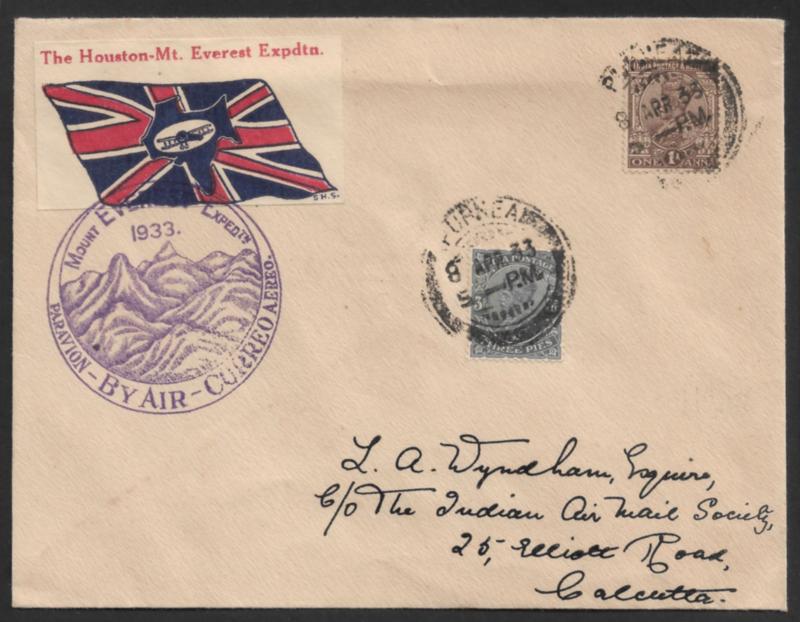 The Houston-Mt. Everest Expdtn.
S.H.S.
MOUNT EVEREST EXPEDTN
1933.
PARAVION - BY AIR - CORREO AEREO.
8 APR 33
P.M.
ONE 1A ANNA
8 APR 33
5 P.M.
POSTAGE
THREE PIES
L. A. Wyndham, Esquire,
C/o The Indian Air Mail Society,
25, Elliott Road,
Calcutta.